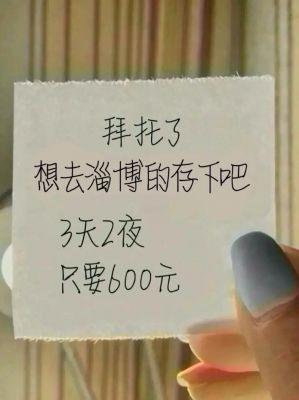 拜托了
想去淄博的存下吧
3天2夜
只要600元